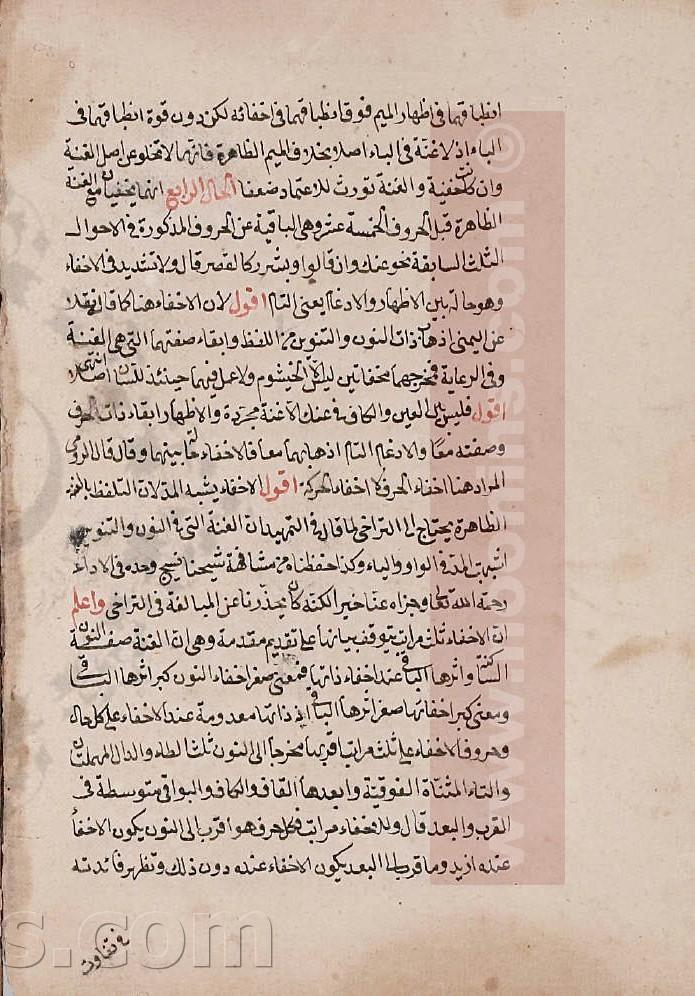 انطباقهما في اظهار الميم فوق انطباقهما في اخفائه لكن دون قوة انطباقهما في
الباء اذ لا غنة في الباء اصلا بخلاف الميم الظاهرة فانها لا تخلو عن اصل الغنة
وان كانت خفية والغنة تورث للاعتماد ضعفا الحال الرابع انهما يخفيان مع الغنة
الظاهرة قبل الحروف الخمسة عشر وهى الباقية عن الحروف المذكورة في الاحوال
الثلث السابقة نحو عنك وان قالوا وبشرر كالقصر قال ولا تشديد في الاخفاء
وهو حالة بين الاظهار والادغام يعنى التام اقول لان الاخفاء هنا كما قال نقلا
عن اليمنى اذهاب ذات النون والتنوين من اللفظ وابقاء صفتهما التى هى الغنة
وفي الرعاية فمخرجهما مخفاتين ليس الا الخيشوم ولا عمل فيهما حينئذ للسان اصلا انتهى
اقول فليس بين العين والكاف في عنك الا غنة مجردة والاظهار ابقاء ذات الحرف
وصفته معا والادغام التام اذهابهما معا فالاخفاء بينهما وقال قال الرومى
المراد هنا اخفاء الحرف لا اخفاء الحركة اقول الاخفاء يشبه المد لان التلفظ بالغنة
الظاهرة يحتاج الى التراخى لما قال في التمهيد ان الغنة التى في النون والتنوين
اشبهت المد في الواو والياء وكذا حفظنا من مشافهة شيخنا نسيج وحده في الاداء
رحمه الله تعالى وجزاه عنا خير الكنه كان يحذرنا عن المبالغة في التراخى واعلم
ان الاخفاء ثلث مراتب يتوقف بيانها على تقديم مقدمة وهى ان الغنة صفة النون
الساكنة واثرها الباقى عند اخفاء ذاتها فمعنى صغر اخفاء النون كبر اثرها الباقى
ومعنى كبر اخفائها صغر اثرها الباقى اذ ذاتها معدومة عند الاخفاء على كل حال
وحروف الاخفاء على ثلث مراتب اقربها مخرجا الى النون ثلث الطاء والدال المهملتان
والتاء المثناة الفوقية وابعدها القاف والكاف والبواقى متوسطة في
القرب والبعد قال وللاخفاء مراتب فكل حرف هو اقرب الى النون يكون الاخفاء
عنده ازيد وما قرب الى البعد يكون الاخفاء عنده دون ذلك وتظهر فائدته
في تفاوت